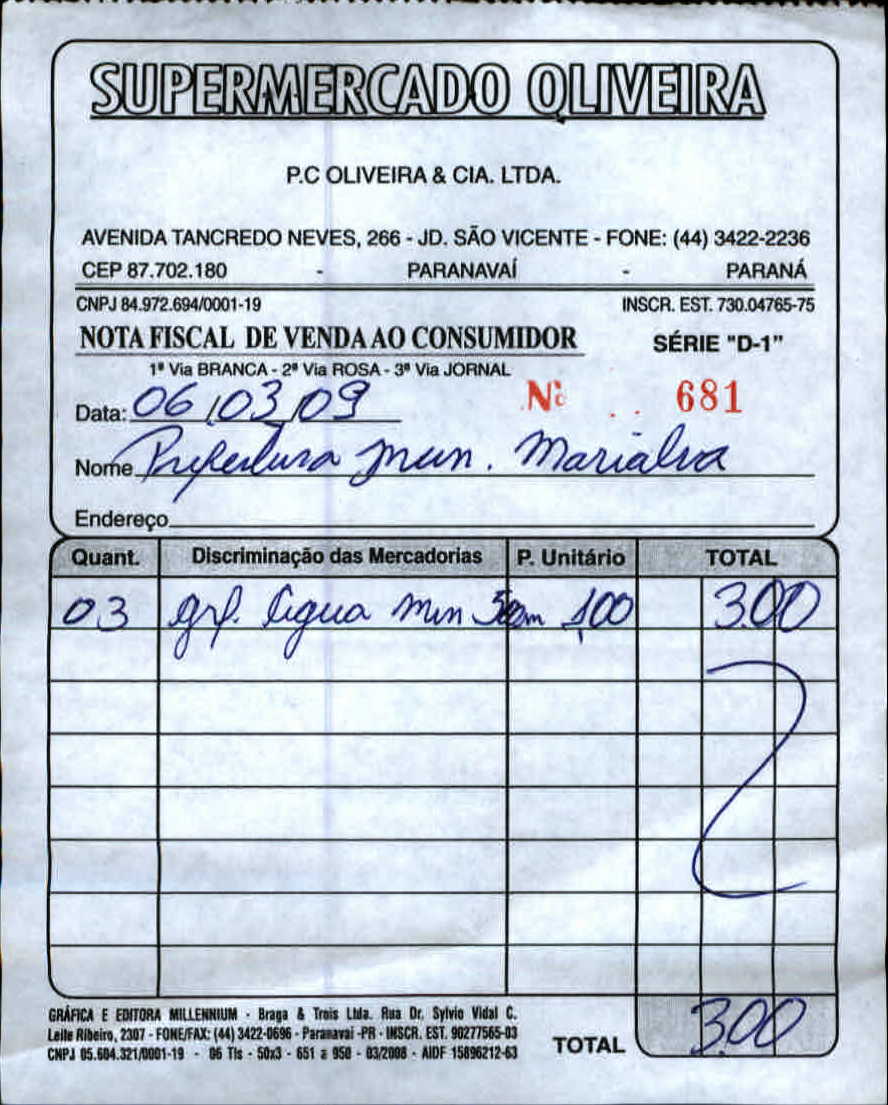 SUPERMERCADO OLIVEIRA
P.C OLIVEIRA & CIA. LTDA.
AVENIDA TANCREDO NEVES, 266 - JD. SÃO VICENTE - FONE: (44) 3422-2236
CEP 87.702.180 - PARANAVAÍ - PARANÁ
CNPJ 84.972.694/0001-19 INSCR. EST. 730.04765-75
NOTA FISCAL DE VENDA AO CONSUMIDOR SÉRIE "D-1"
1ª Via BRANCA - 2ª Via ROSA - 3ª Via JORNAL
Data: 06/03/09 Nº 681
Nome Prefeitura Mun. Marialva
Endereço
Quant. Discriminação das Mercadorias P. Unitário TOTAL
03 grf. Água Min 1,00 3.00
GRÁFICA E EDITORA MILLENNIUM - Braga & Trois Ltda. Rua Dr. Sylvio Vidal C.
Leite Ribeiro, 2307 - FONE/FAX: (44) 3422-0696 - Paranavaí -PR - INSCR. EST. 90277565-03
CNPJ 05.604.321/0001-19 - 06 Tls - 50x3 - 651 a 950 - 03/2008 - AIDF 15896212-63
TOTAL 3.00